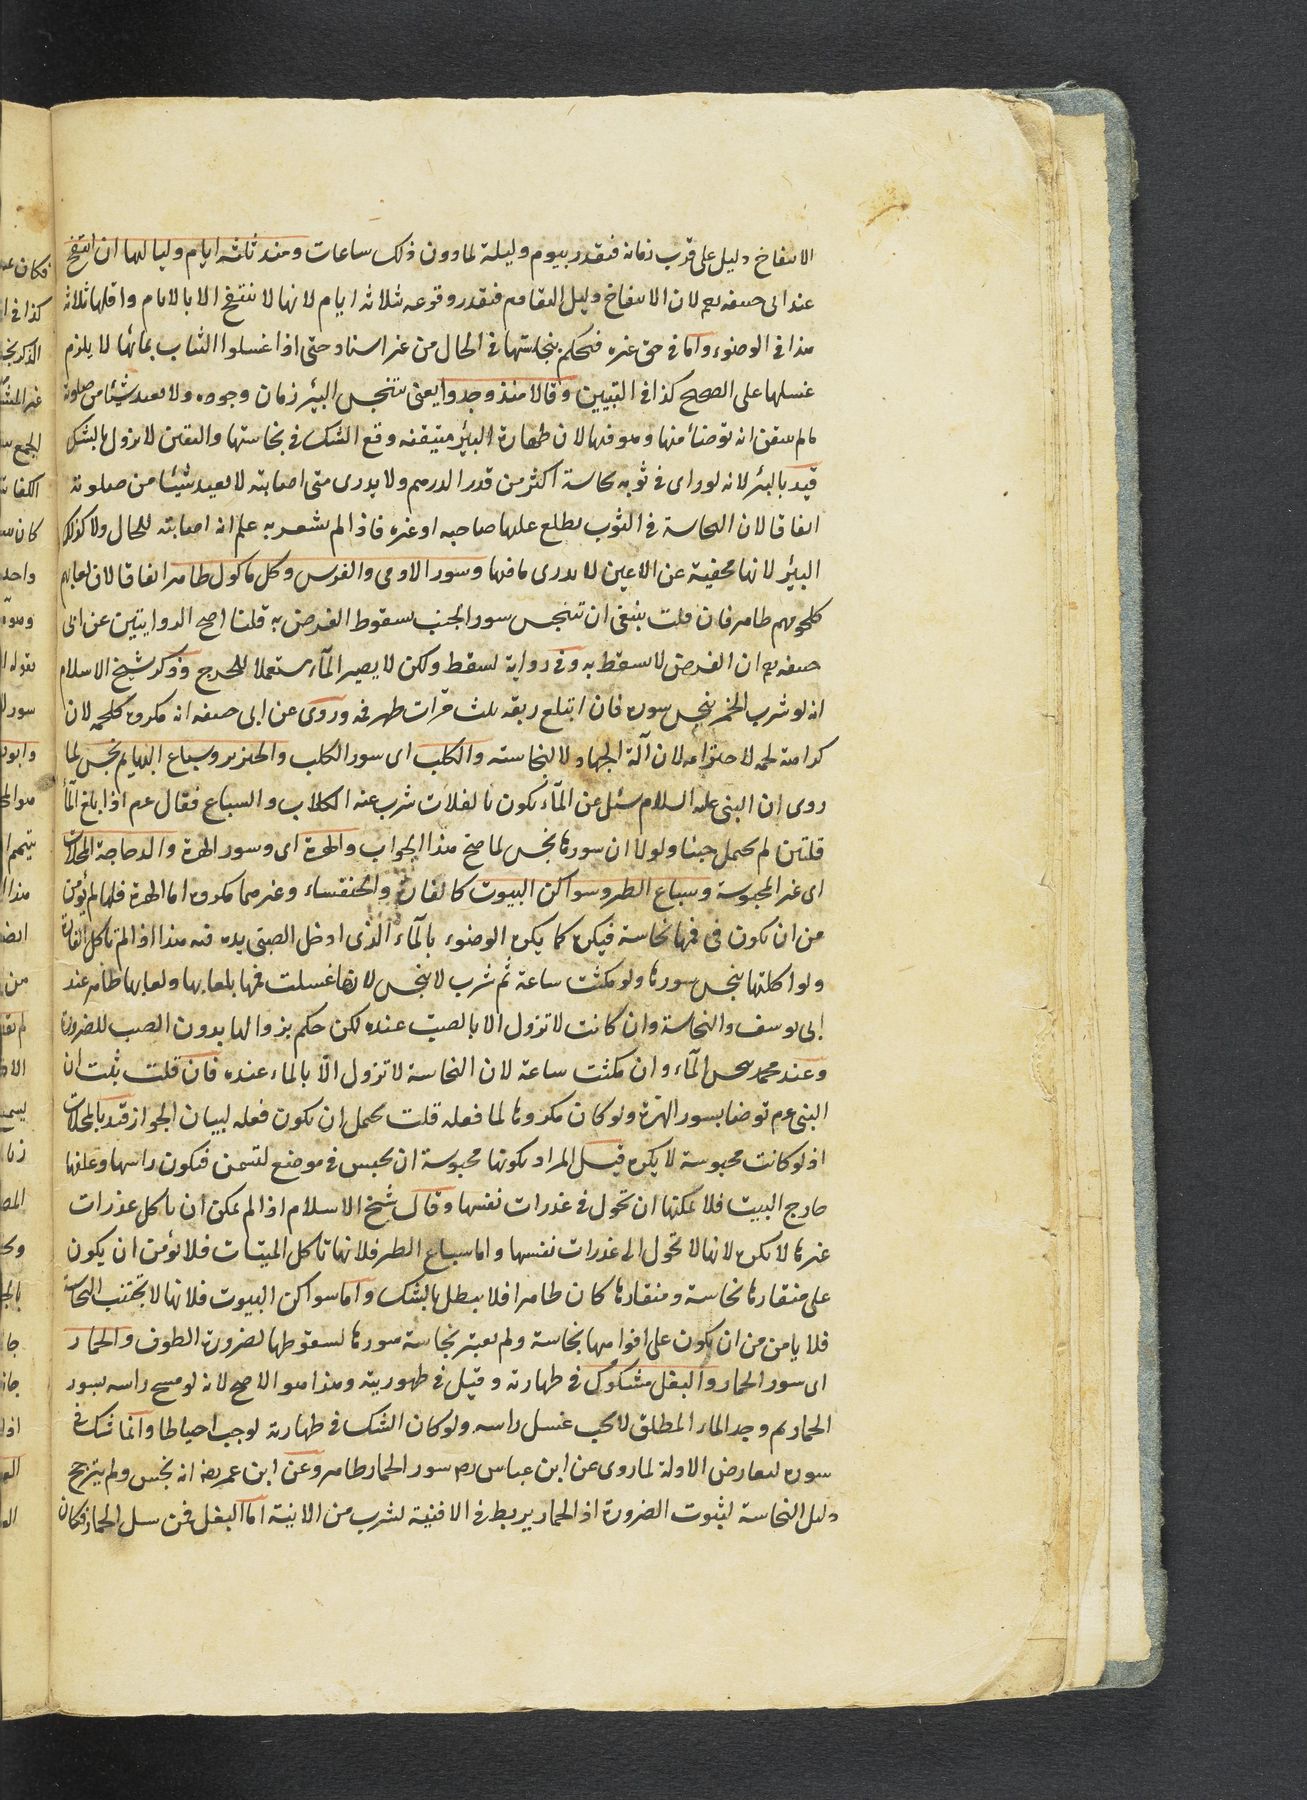 الانتفاخ دليل على قرب زمانه فيقدر بيوم وليلة لما دون ذلك ساعات ومنذ ثلثة ايام ولياليها ان انتفخ
عند ابى حنيفه رح لان الانتفاخ دليل التقادم فيقدر وقوعه بثلاثة ايام لانها لا تنتفخ الا بالايام واقلها ثلاثة
هذا فى الوضوء واما فى حق غيره فيحكم بنجاستها فى الحال من غير اسناد حتى اذا غسلوا الثياب بمائها لا يلزم
غسلها على الصحيح كذا فى التبيين وقالا منذ وجدوا يعنى تتنجس البئر زمان وجوده ولا يعيد شيئا من صلوته
ما لم يتيقن انه توضأ منها وهو فيها لان طهارة البئر متيقنه وقع الشك فى نجاستها واليقين لا يزول بالشك
قيد بالبئر لانه لو راى فى ثوبه نجاسة اكثر من قدر الدرهم ولا يدرى متى اصابته لا يعيد شيئا من صلوته
اتفاقا لان النجاسة فى الثوب يطلع عليها صاحبه او غيره فاذا لم يشعر به علم انه اصابته للحال ولا كذلك
البئر لانها مخفية عن الاعين لا يدرى ما فيها وسور الادمى والفرس وكل ماكول طاهر اتفاقا لان لعابهم
كلحومهم طاهر فان قلت ينبغى ان تتنجس سور الجنب لسقوط الفرض به قلنا اصح الروايتين عن ابى
حنيفه رح ان الفرض لا يسقط به وفى رواية لسقط ولكن لا يصير المآء مستعملا للحرج وذكر شيخ الاسلام
انه لو شرب الخمر ينجس سوره فان ابتلع ريقه ثلث مرات طهر فمه وروى عن ابى حنيفه انه مكروه كلحمه لان
كرامة لحمه لاحترامه لان آلة الجهاد لا لنجاسته والكلب اى سور الكلب والخنزير وسباع البهايم نجس لما
روى ان النبى عليه السلام سئل عن المآء يكون بالفلات شرب عنه الكلاب والسباع فقال عم اذا بلغ المآء
قلتين لم يحمل خبثا ولولا ان سورها نجس لما صح هذا الجواب والهرة اى وسور الهرة والدجاجة المخلات
اى غير المحبوسة وسباع الطير وسواكن البيوت كالفارة والخنفساء وغيرهما مكروه اما الهرة فلما لم يؤمن
من ان تكون فى فمها نجاسة فيكره كما يكره الوضوء بالمآء الذى ادخل الصبى يده فيه هذا اذا لم تاكل الفارة
ولو اكلتها ينجس سورها ولو مكثت ساعة ثم شرب لا ينجس لانها غسلت فمها بلعابها ولعابها طاهر عند
ابى يوسف والنجاسة وان كانت لا تزول الا بالصب عنده لكن حكم بزوالها بدون الصب للضرورة
وعند محمد نجس المآء وان مكثت ساعة لان النجاسة لا تزول الا بالماء عنده فان قلت ثبت ان
النبى عم توضا بسور الهرة ولو كان مكروها لما فعله قلت يحمل ان تكون فعله لبيان الجواز قيد بالمخلات
اذ لو كانت محبوسة لا يكره قيل المراد بكونها محبوسة ان يحبس فى موضع لتسمن فيكون راسها وعلفها
خارج البيت فلا يمكنها ان تحول فى غدرات نفسها وقال شيخ الاسلام اذا لم يمكن ان ياكل عذرات
غيرها لا يكره لانها لا تحول الى غدرات نفسها واما سباع الطير فلانها تاكل الميتات فلا نؤمن ان يكون
على منقارها نجاسة ومنقارها كان طاهرا فلا يبطل بالشك واما سواكن البيوت فلانها لا تجتنب النجاسة
فلا يامن من ان يكون على افواهها نجاسة ولم يعتبر نجاسة سورها لسقوطها لضرورة الطوف والحمار
اى سور الحمار والبغل مشكوك فى طهارته وقيل فى طهوريته وهذا هو الاصح لانه لو مسح راسه بسور
الحمار ثم وجد الماء المطلق لا يجب غسل راسه ولو كان الشك فى طهارته لوجب احتياطا وانما شك فى
سوره لتعارض الادلة لما روى عن ابن عباس رض سور الحمار طاهر وعن ابن عمر رض انه نجس ولم يترجح
دليل النجاسة لثبوت الضرورة اذ الحمار يربط فى الافنية لشرب من الانية اما البغل فمن نسل الحمار فكان